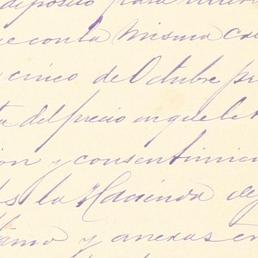 deposito para
e con la misma
cinco de Octubre
del precio en que le
ion y consentimien
la Hacienda de
y anexas en